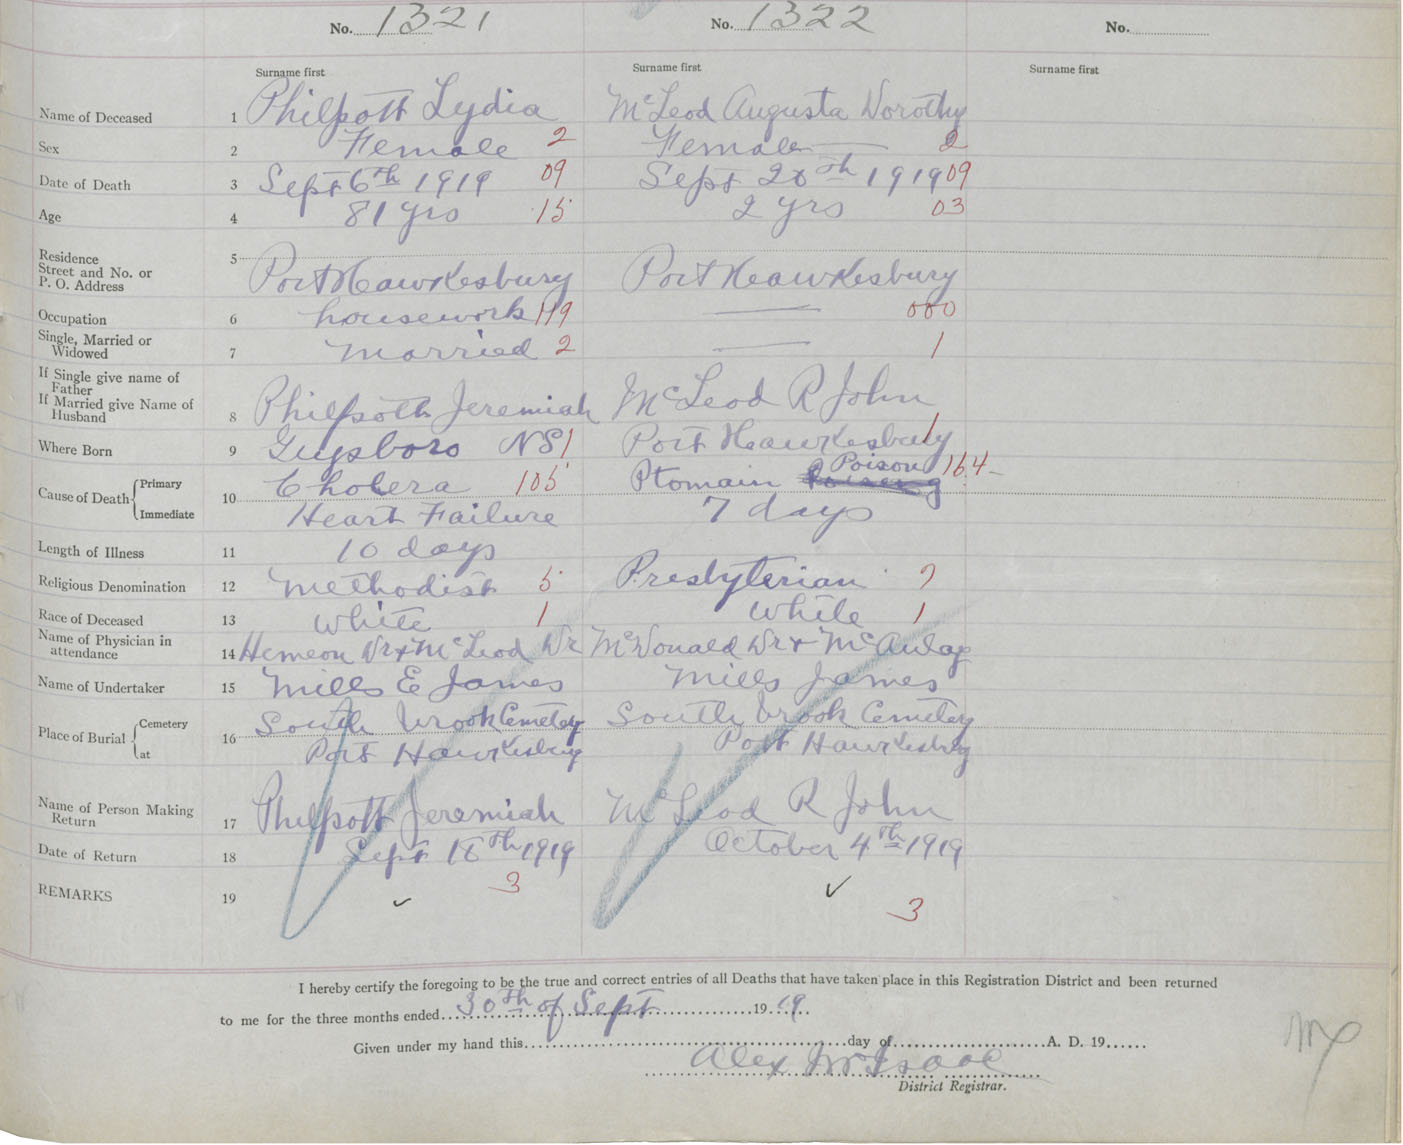 No. 1321 No. 1322 No.
Surname first Surname first Surname first
Name of Deceased 1 Philpott Lydia McLeod Augusta Dorothy
Sex 2 Female 2 Female 2
Date of Death 3 Sept 6th 1919 09 Sept 28th 1919 09
Age 4 81 yrs 15 2 yrs 03
Residence
Street and No. or
P. O. Address
5 Port Hawkesbury Port Hawkesbury
Occupation 6 housework 119 000
Single, Married or
Widowed
7 married 2 1
If Single give name of
Father
If Married give Name of
Husband
8 Philpott Jeremiah McLeod R John
Where Born 9 Guysboro NS 1 Port Hawkesbury 1
Cause of Death Primary 10 Cholera 105 Ptomain Poison 164
Immediate Heart Failure 7 days
Length of Illness 11 10 days
Religious Denomination 12 methodist 5 Presbyterian 7
Race of Deceased 13 white 1 white 1
Name of Physician in
attendance
14 Hemeon Dr + McLeod Dr McDonald Dr + McAulay
Name of Undertaker 15 mills E James mills James
Place of Burial Cemetery 16 South brook Cemetey South brook Cemetey
at Port Hawkesbury Port Hawkesbry
Name of Person Making
Return
17 Philpott Jeremiah McLeod R John
Date of Return 18 Sept 18th 1919 October 4th 1919
REMARKS 19 3 3
I hereby certify the foregoing to be the true and correct entries of all Deaths that have taken place in this Registration District and been returned
to me for the three months ended 30th of Sept 1919
Given under my hand this day of A. D. 19
Alex McIsaac
District Registrar.